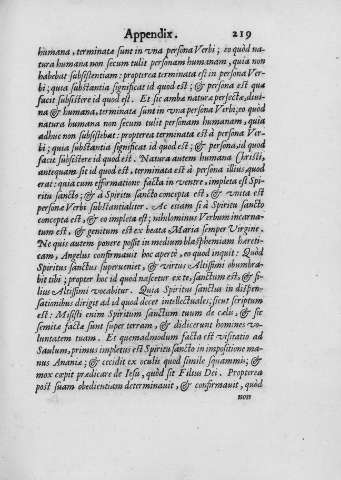 Appendix. 219
humana, terminatæ sunt in vna persona Verbi; eo quòd na-
tura humana non secum tulit personam humanam, quia non
habebat subsistentiam: propterea terminata est in persona Ver-
bi; quia substantia significat id quod est; & persona est quæ
facit subsistere id quod est. Et sic ambæ naturæ perfectæ, diui-
na & humana, terminatæ sunt in vna persona Verbi; eo quòd
natura humana non secum tulit personam humanam, quia
adhuc non subsistebat: propterea terminata est à persona Ver-
bi; quia substantia significat id quod est; & persona, id quod
facit subsistere id quod est. Natura autem humana Christi,
antequam sit id quod est, terminata est à persona illius quod
erat: quia cum efformatione facta in ventre, impleta est Spi-
ritu sancto; & à Spiritu sancto concepta est, & vnita est
personæ Verbi substantialiter. Ac etiam si à Spiritu sancto
concepta est, & eo impleta est; nihilominus Verbum incarna-
tum est, & genitum est ex beata Maria semper Virgine.
Ne quis autem ponere possit in medium blasphemiam hæreti-
cam, Angelus confirmauit hoc apertè, eo quod inquit: Quòd
Spiritus sanctus superueniet, & virtus Altissimi obumbra-
bit tibi; propter hoc id quod nascetur ex te, sanctum est, & fi-
lius Altissimi vocabitur. Quia Spiritus sanctus in dispen-
sationibus dirigit ad id quod decet intellectuales; sicut scriptum
est: Misisti enim Spiritum sanctum tuum de cœlis, & sic
semitæ factæ sunt super terram, & didicerunt homines vo-
luntatem tuam. Et quemadmodum facta est visitatio ad
Saulum, primus impletus est Spiritu sancto in impositione ma-
nus Ananiæ; & cecidit ex oculis quod simile squammo; &
mox cœpit prædicare de Iesu, quòd sit Filius Dei. Propterea
post suam obedientiam determinauit, & confirmauit, quòd
non